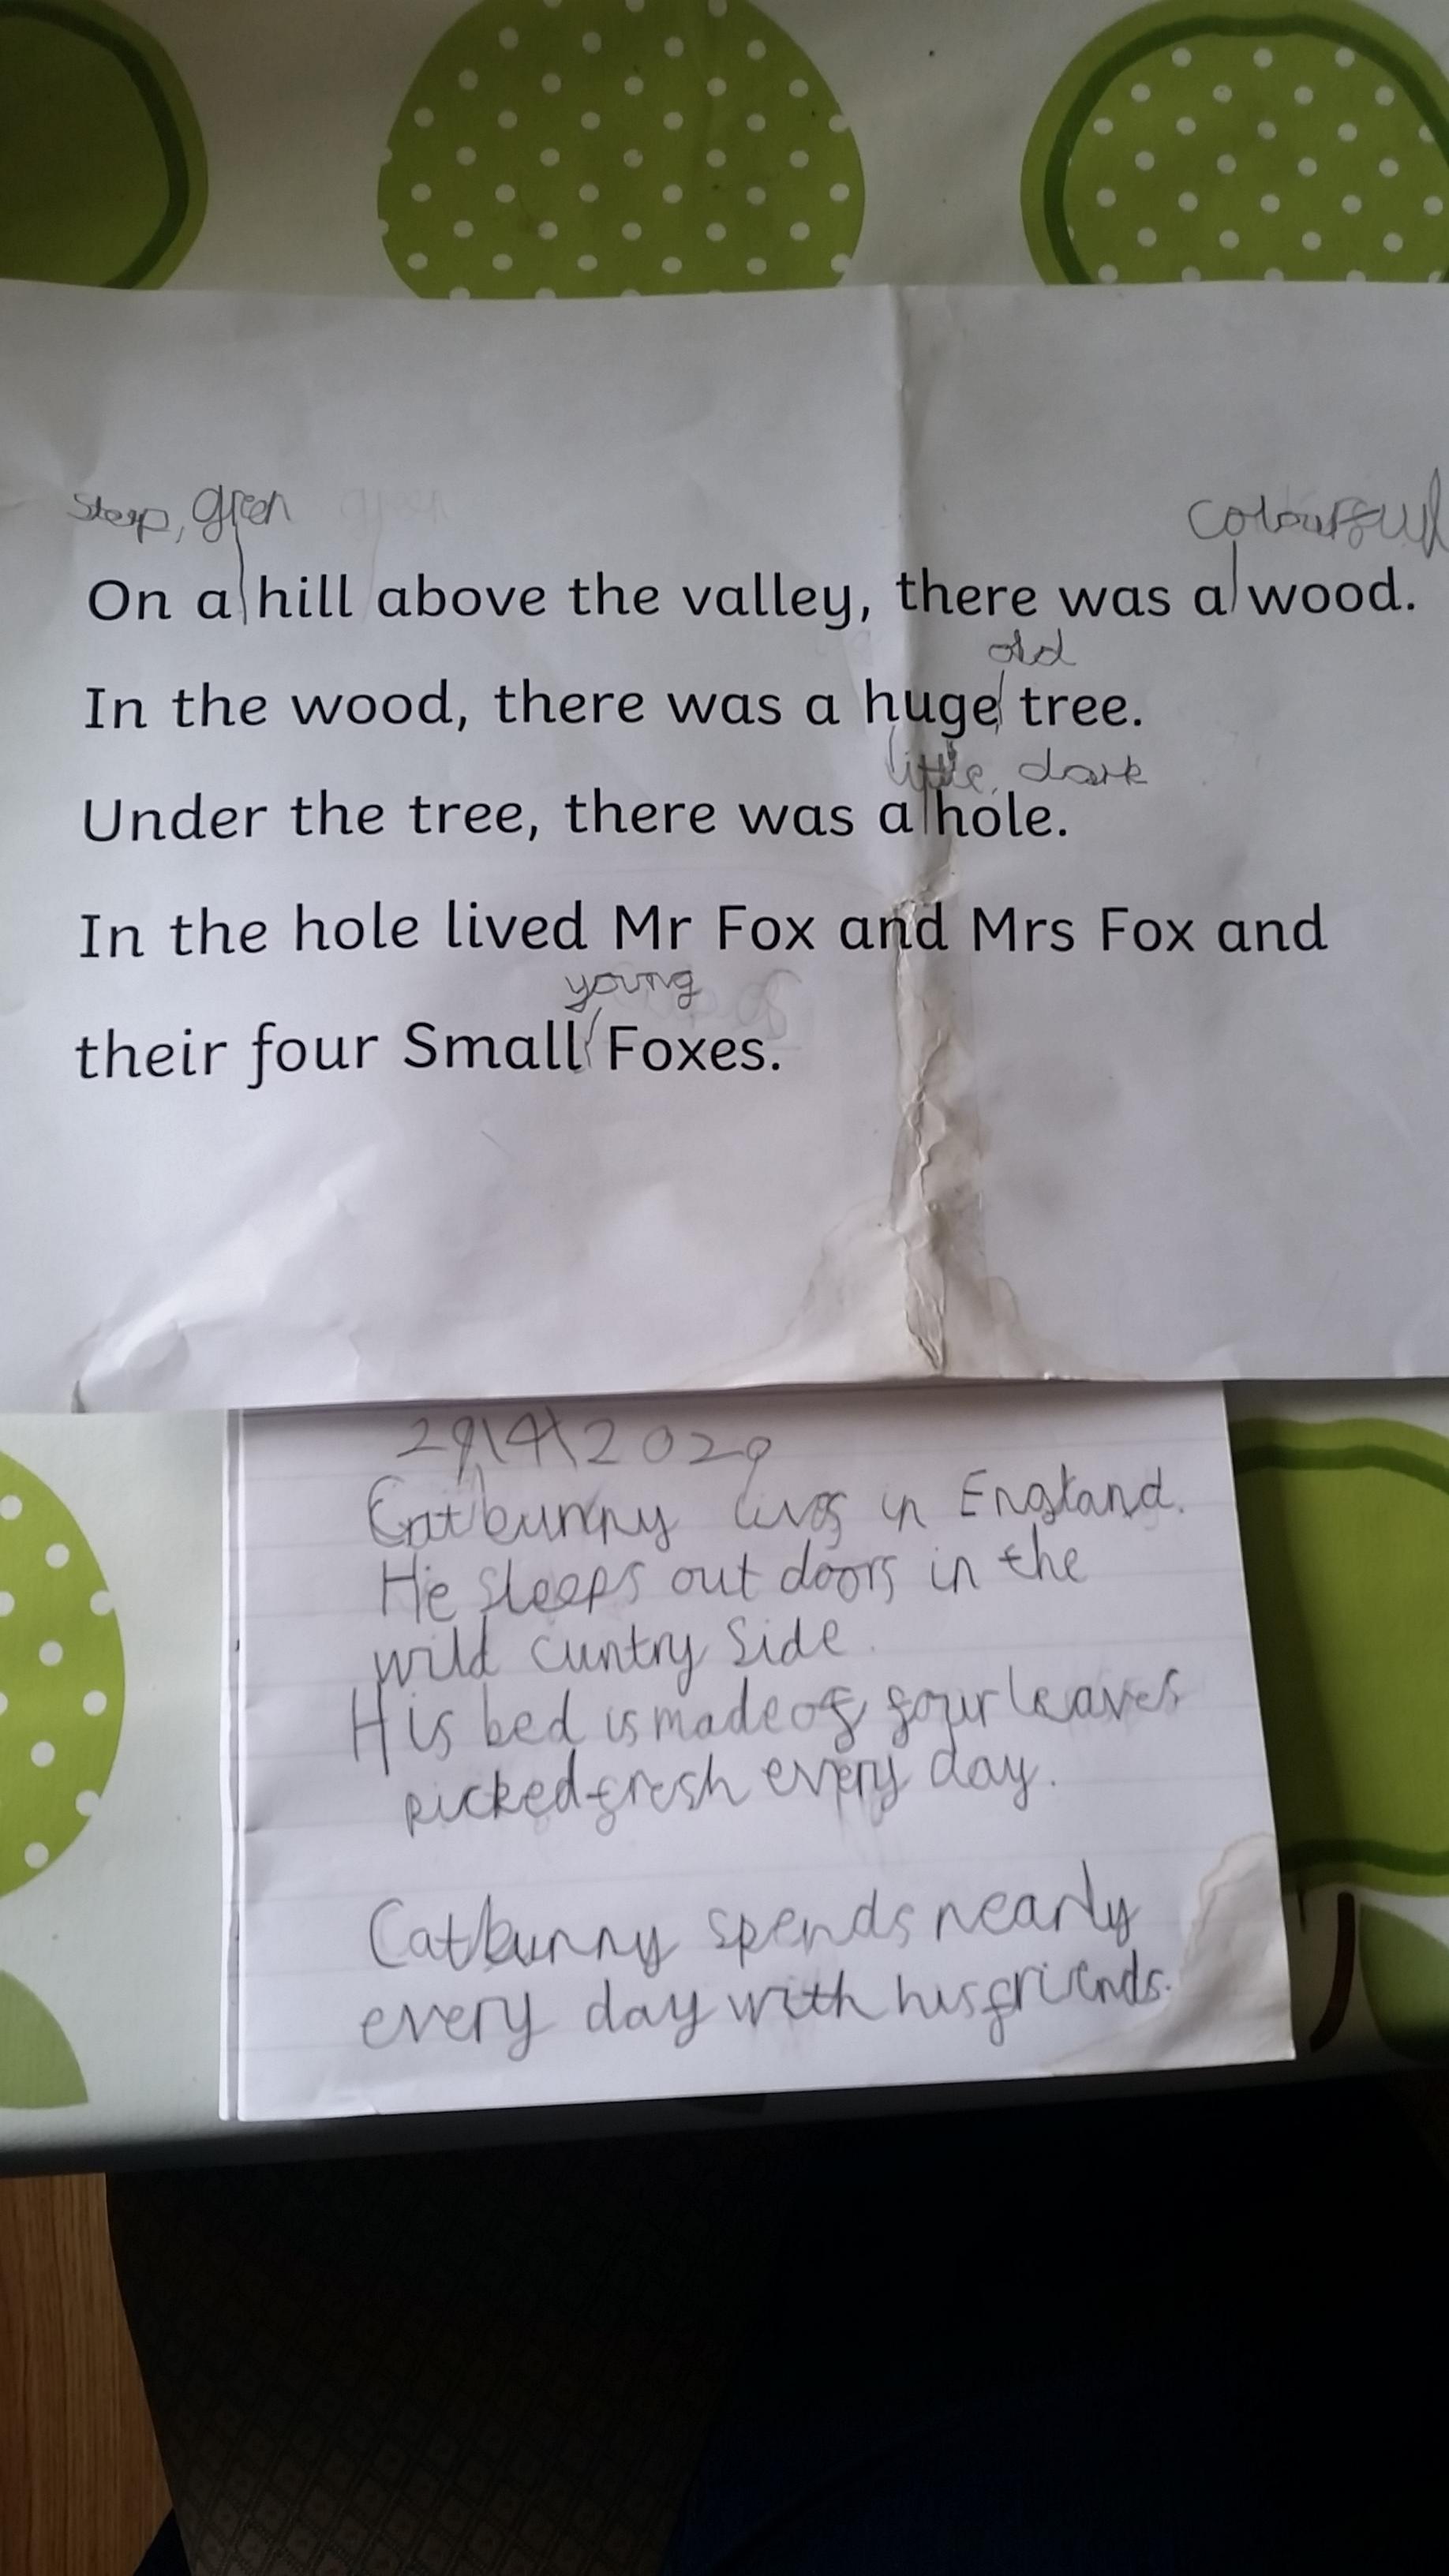 steep, green
colourful
On a hill above the valley, there was a wood.
old
In the wood, there was a huge tree.
little, dark
Under the tree, there was a hole.
In the hole lived Mr Fox and Mrs Fox and
young
their four Small Foxes.
29\4\2020
Catbunny lives in England.
He sleeps out doors in the
wild cuntry side.
His bed is made of four leaves
picked fresh every day.
Catbunny spends nearly
every day with his friends.